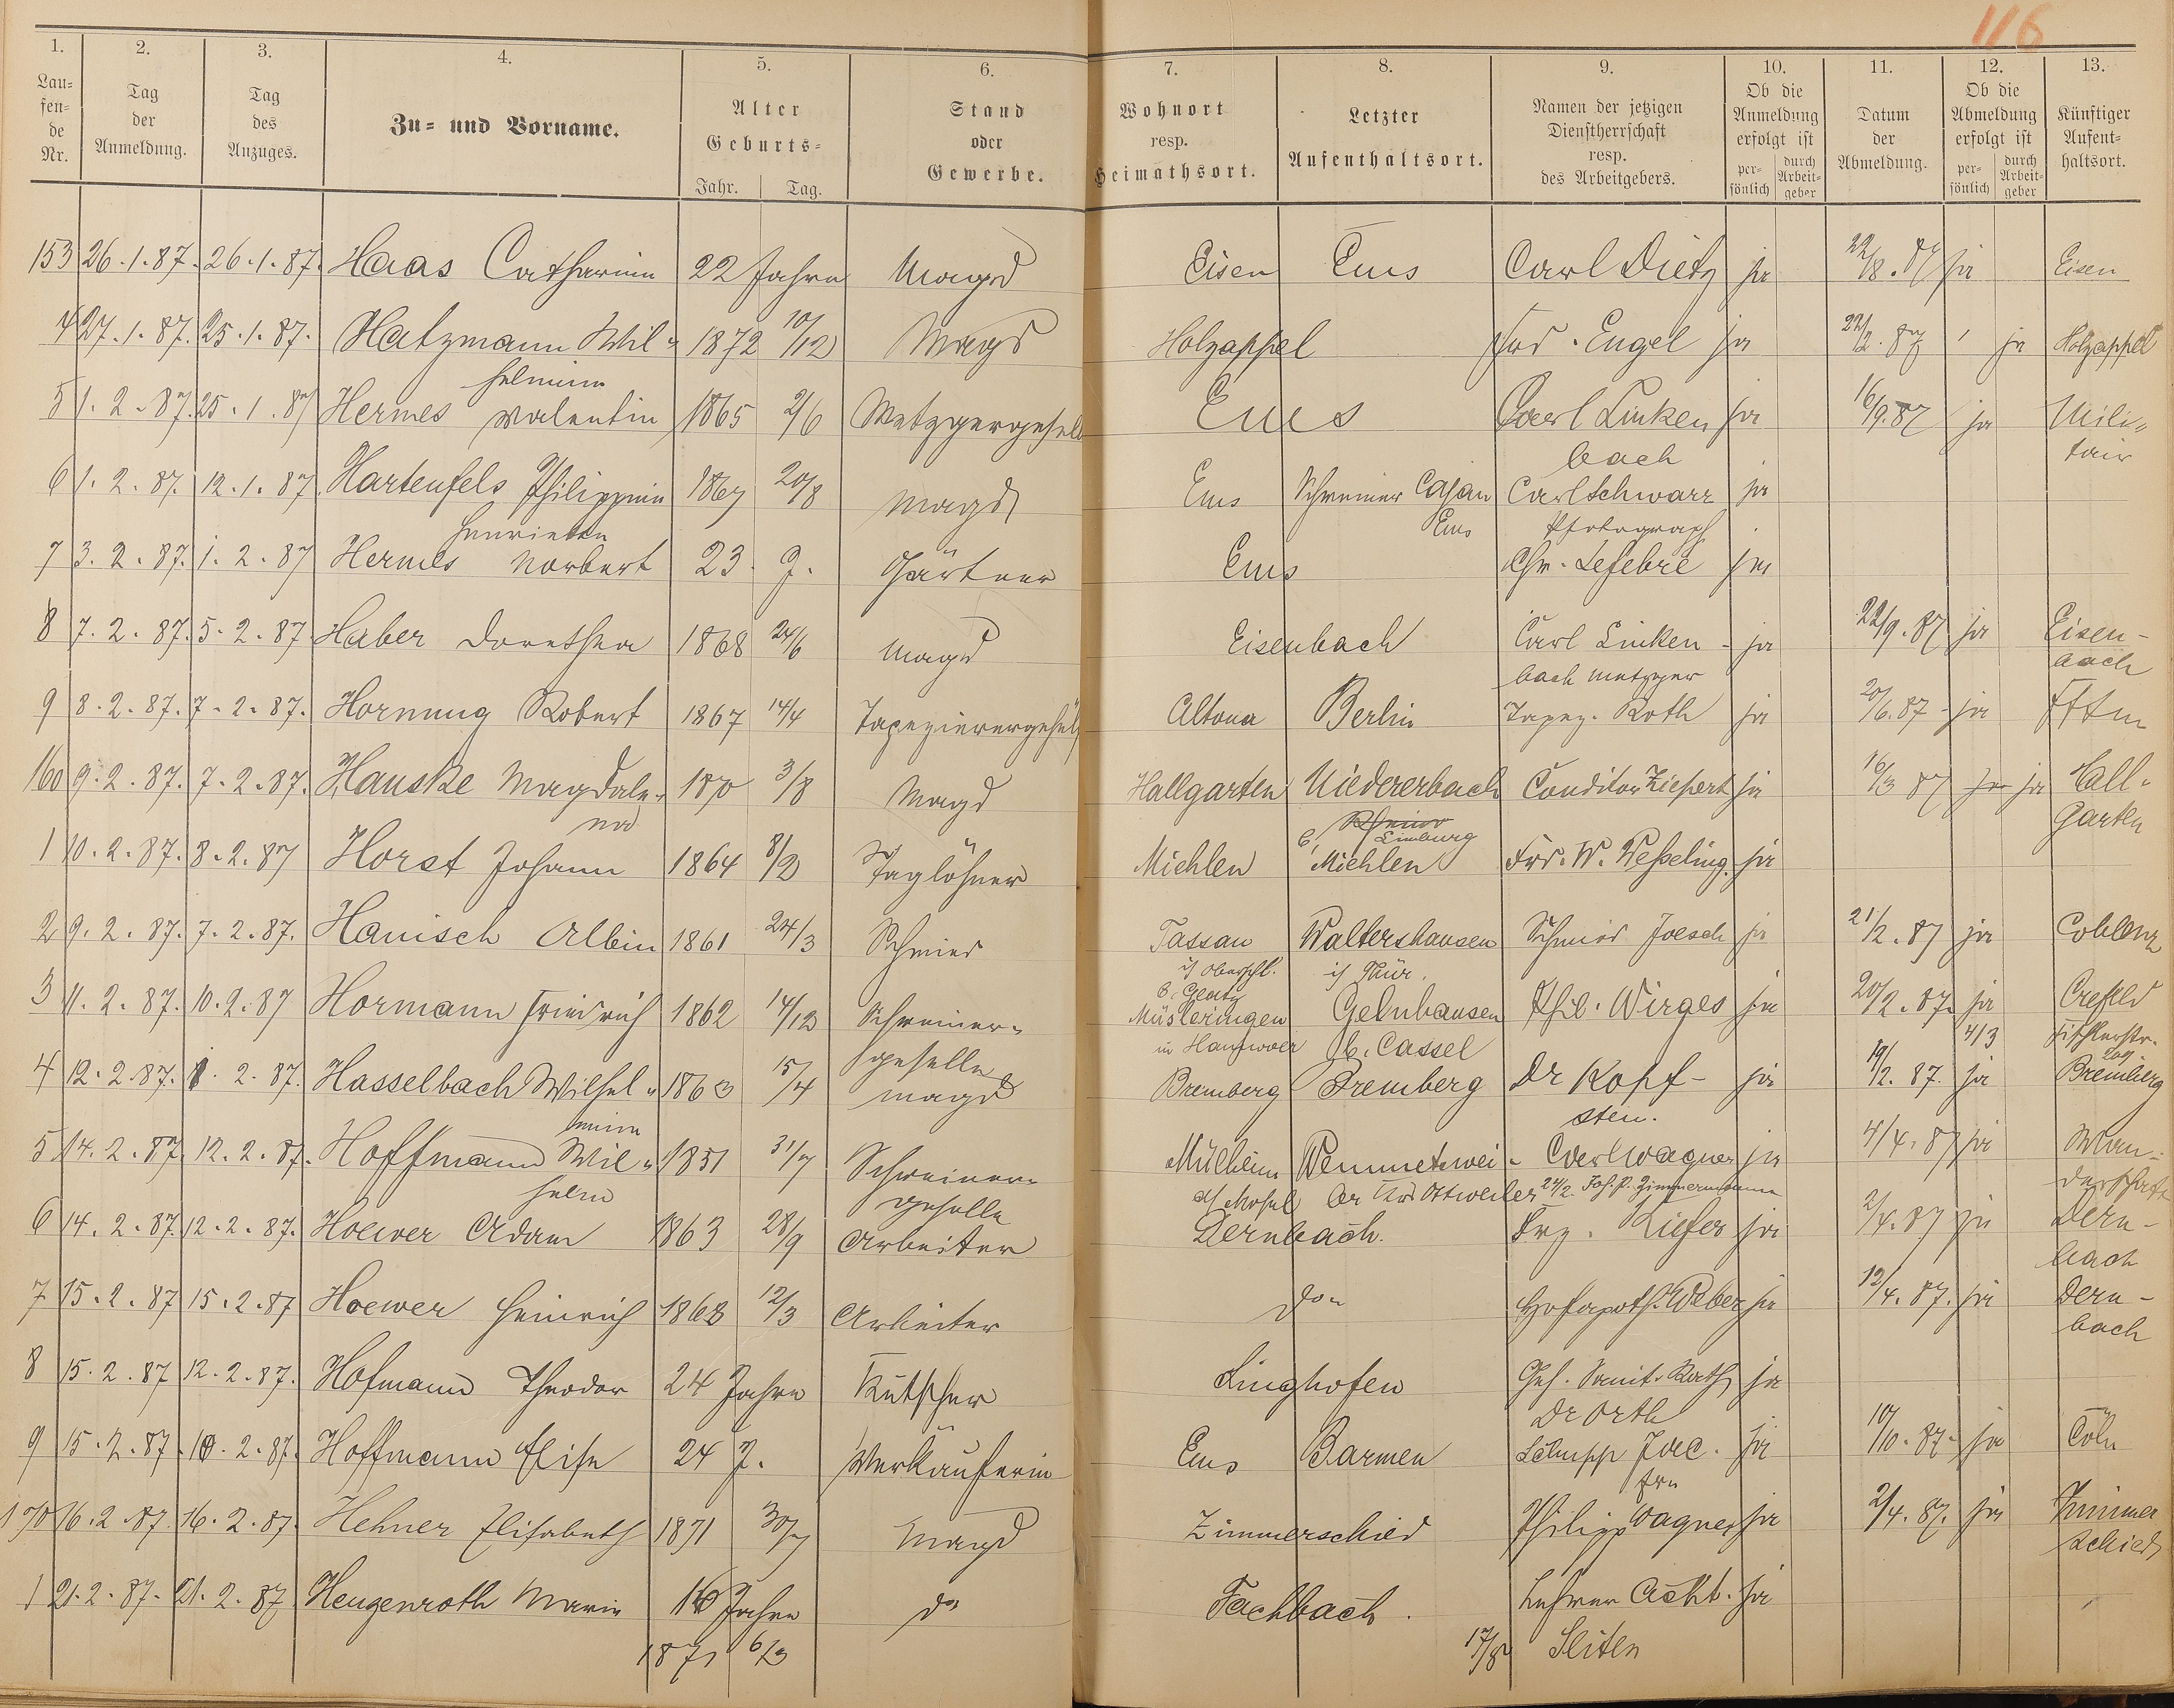 116
1. 2. 3. 4. 5. 6. 7. 8. 9. 10. 11. 12. 13.
Lau=
fen=
de
Nr.
Tag
der
Anmeldung.
Tag
des
Anzuges.
Zu= und Vorname.
Alter
Geburts=
Jahr. Tag.
Stand
oder
Gewerbe.
Wohnort
resp.
Heimathsort.
Letzter
Aufenthaltsort.
Namen der jetzigen
Dienstherrschaft
resp.
des Arbeitgebers.
Ob die
Anmeldung
erfolgt ist
per=
sönlich
durch
Arbeit=
geber
Datum
der
Abmeldung.
Ob die
Abmeldung
erfolgt ist
per=
sönlich
durch
Arbeit=
geber
Künftiger
Aufent=
haltsort.
153 26.1.87. 26.1.87. Haas Catharina 22 Jahre Magd Eisen Ems Carl Dietz ja 22/8.87 ja Eisen
4 27.1.87. 25.1.87. Hatzmann Wil= 1872 10/12 Magd Holzappel Engel ja 22/2.87 ja Holzappel
helmine
5 1.2.87. 25.1.87 Hermes Valentin 1865 2/6 Metzgergeselle Ems Carl Linken ja 16/9.87 ja Mili=
bach tair
6 1.2.87. 12.1.87. Hartenfels Philippine 1867 20/8 Magd Ems Schreiner Cajan Carl Schwarz ja
Henriette Ems Photograph
7 3.2.87. 1.2.87 Hermes Norbert 23 J. Gärtner Ems Chr. Lefebre ja
8 7.2.87. 5.2.87 Haber Dorothea 1868 24/6 Magd Eisenbach Carl Linken- ja 22/9.87 ja Eisen-
bach Metzger bach
9 8.2.87. 7.2.87. Hornung Robert 1867 14/4 Tapezierergehülfe Altona Berlin Tapez. Roth ja 20/6.87 ja Fftm
160 9.2.87. 7.2.87. Hanske Magdale= 1870 3/8 Magd Hallgarten Niedererbach Conditor Ziepert ja 16/3 87 ja ja Hall=
na Limburg garten
1 10.2.87. 8.2.87 Horst Johann 1864 8/2 Taglöhner Miehlen Miehlen Frd. W. Weßeling. ja
2 9.2.87. 7.2.87. Hanisch Albin 1861 24/3 Schmied Tassau Waltershausen Schmied Joesch ja 21/2.87 ja Coblenz
i/ Oberschl. i/ Thür.
b. Glatz
3 11.2.87. 10.2.87 Hormann Friedrich 1862 14/12 Schreiner= Müsleringen Gelnhausen Phil. Wirges ja 20/2.87. ja Crefeld
geselle in Hannover b. Cassel 4/3 Fischlerstr.
4 12.2.87. 1.2.87. Hasselbach Wilhel= 1863 15/4 Magd Bremberg Bremberg Dr Kopf- ja 19/2.87. ja Bremberg
mine sten.
5 14.2.87 12.2.87. Hoffmann Wil= 1851 31/7 Schreiner= Mülheim Wemmetswei= Carl Wagner ja 4/4.87 ja Wan=
helm geselle a/ Mosel ler Krs Ottweiler 24/2. Joh. P. Zimmermann derschaft
6 14.2.87. 12.2.87. Hoewer Adam 1863 28/9 Arbeiter Dernbach. Frz. Kiefer ja 2/4.87 ja Dern-
bach
7 15.2.87 15.2.87 Hoewer Heinrich 1868 12/3 Arbeiter do Hofapoth. Weber ja 12/4.87. ja Dern-
bach
8 15.2.87 12.2.87. Hofmann Theodor 24 Jahre Kutscher Linghofen Geh. Sanit. Rath ja
Dr Orth
9 15.2.87. 10.2.87. Hoffmann Elise 24 J. Verkäuferin Ems Barmen Schupp Jac. ja 10/10.87. ja Cöln
170 16.2.87. 16.2.87. Hehner Elisabeth 1871 30/7 Magd Zimmerschied Philipp Wagner ja 2/4.87. ja Zimmer
schied
1 21.2.87. 21.2.87 Heugenroth Marie 16 Jahre do Fachbach. Lehrer Acht. ja
1871 6/3 17/8